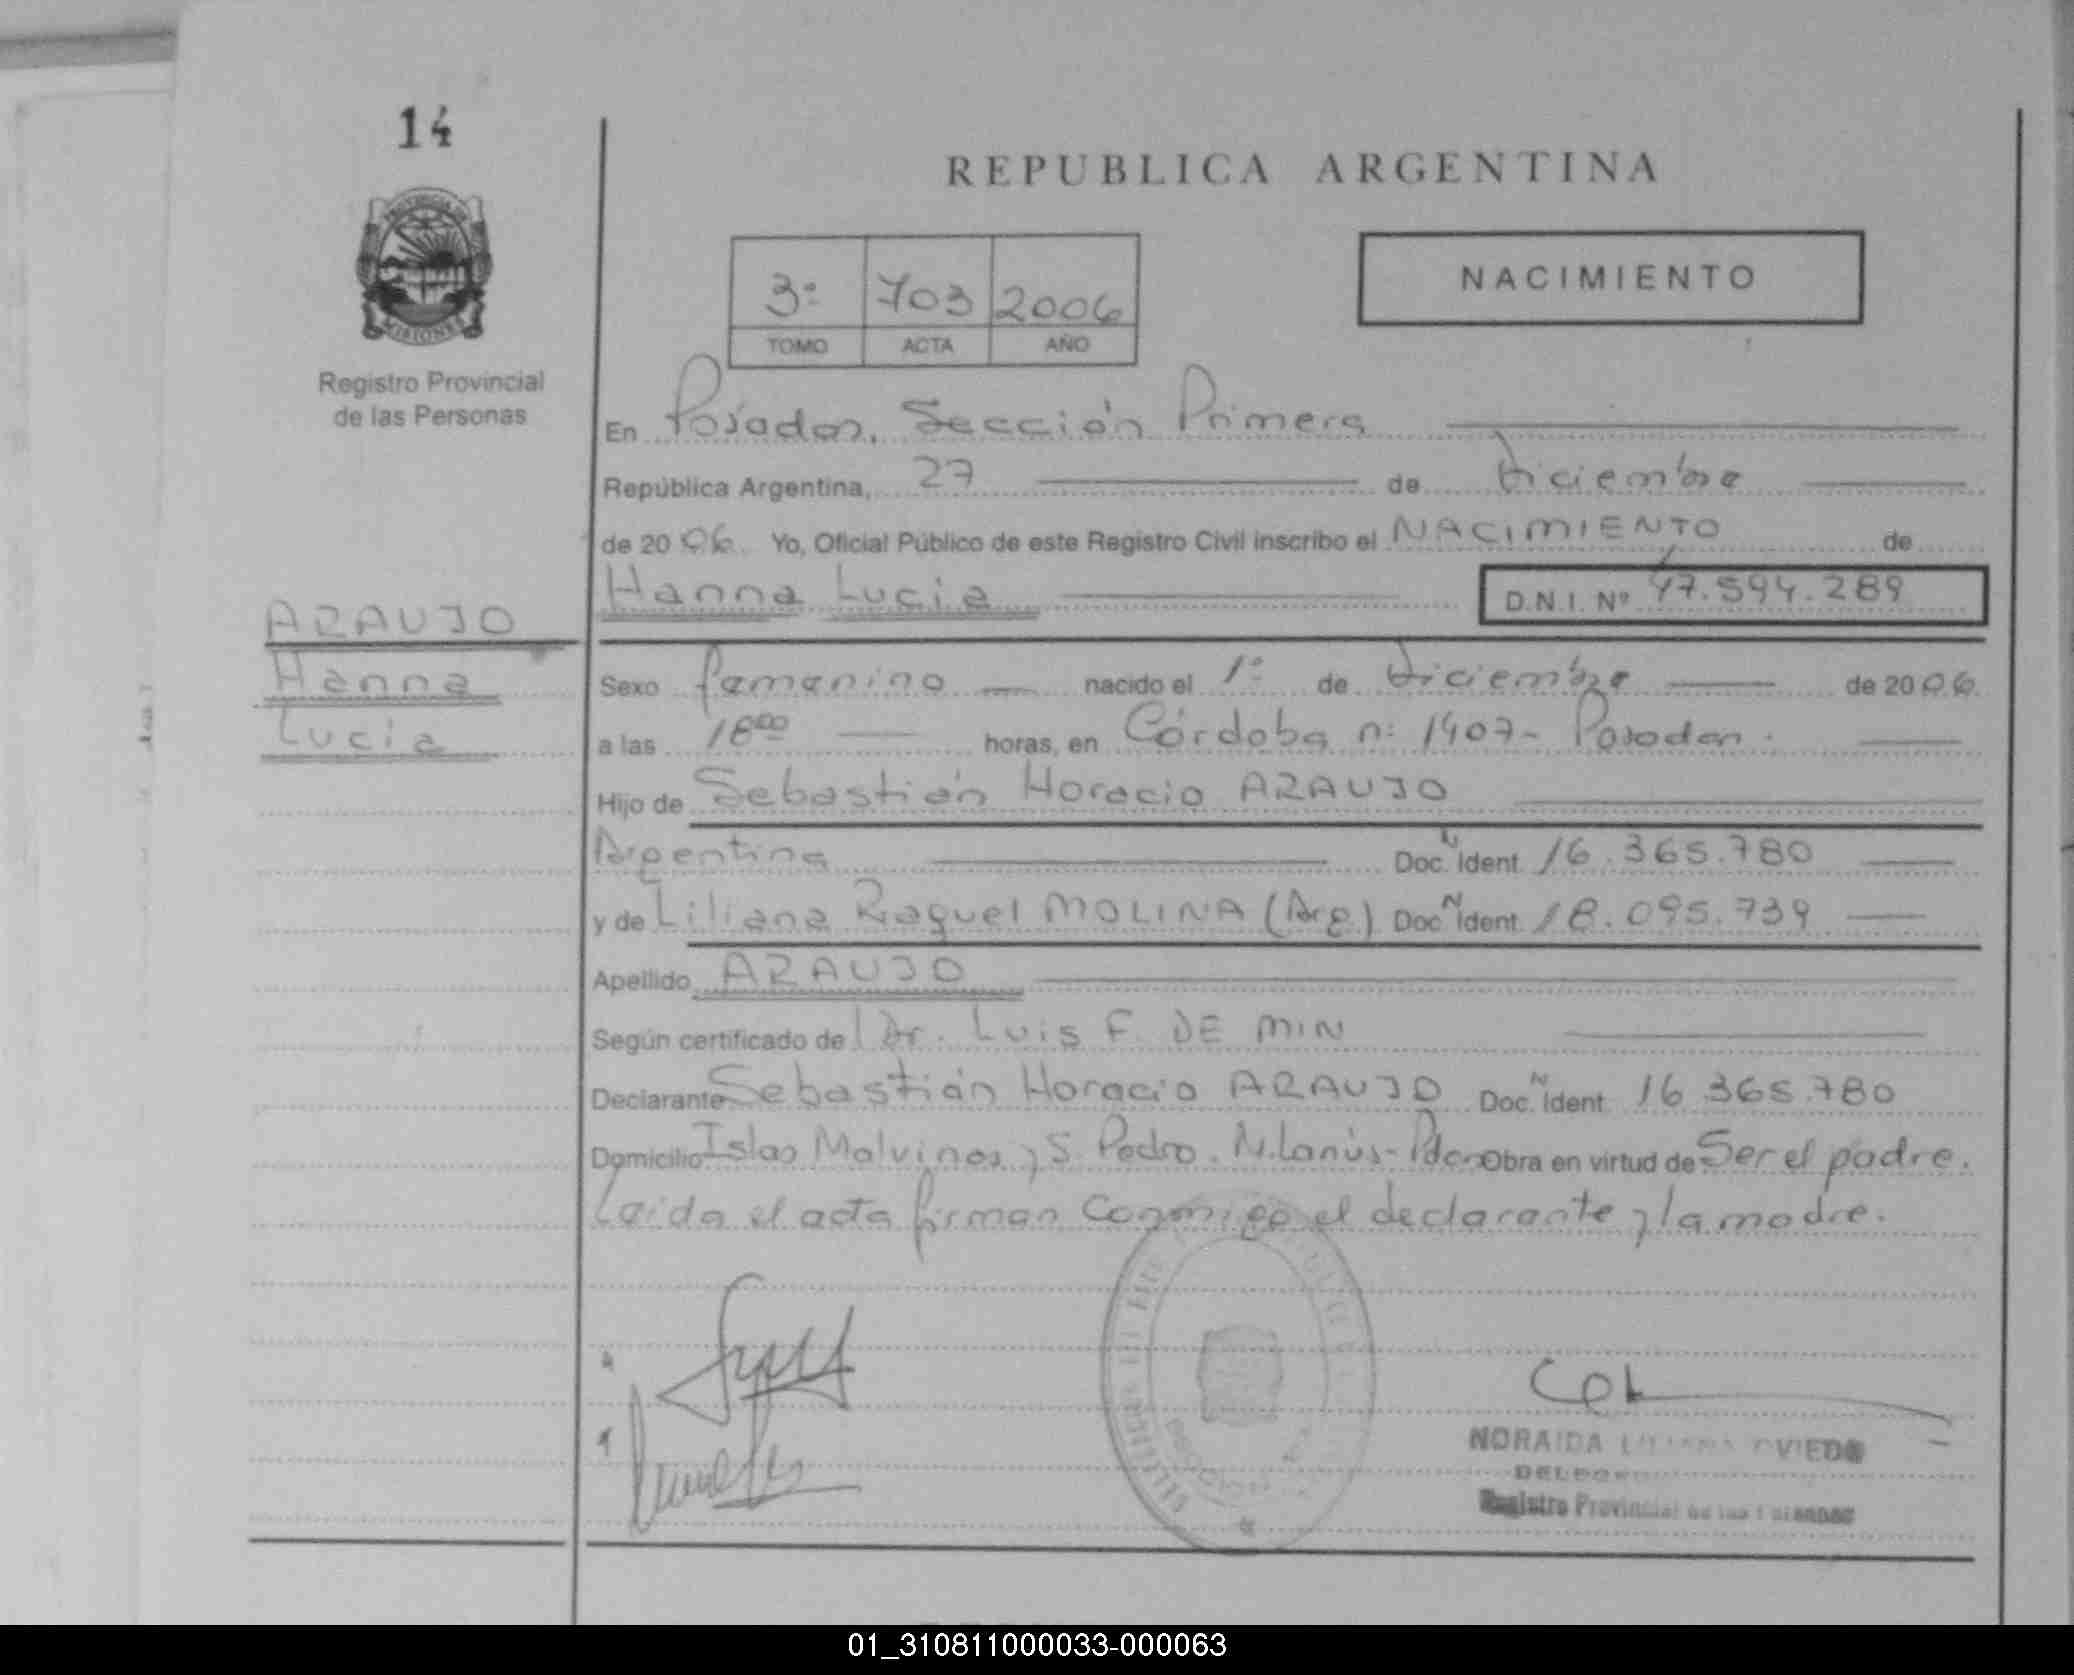 14
REPUBLICA ARGENTINA
PROVINCIA DE
MISIONES
Registro Provincial
de las Personas
3º 703 2006
TOMO ACTA AÑO
NACIMIENTO
En Posadas, Sección Primera
República Argentina, 27 de Diciembre
de 2006. Yo, Oficial Público de este Registro Civil inscribo el NACIMIENTO de
Hanna Lucia D.N.I. Nº 47.594.289
ARAUJO
Hanna
Lucia
Sexo femenino nacido el 1º de Diciembre de 2006
a las 18⁰⁰ horas, en Córdoba nº 1407 - Posadas.
Hijo de Sebastián Horacio ARAUJO
Argentina Doc. N Ident. 16.365.780
y de Liliana Raquel MOLINA (Arg.) Doc. N Ident. 18.095.739
Apellido ARAUJO
Según certificado de Dr. Luis F. DE MIN
Declarante Sebastián Horacio ARAUJO Doc. N Ident. 16.365.780
Domicilio Islas Malvinas y S. Pedro. M. Lanús - Pdas Obra en virtud de Ser el padre.
Leida el acta firman conmigo el declarante y la madre.
NORAIDA LILIANA OVIEDO
Registro Provincial de las Personas
01_310811000033-000063